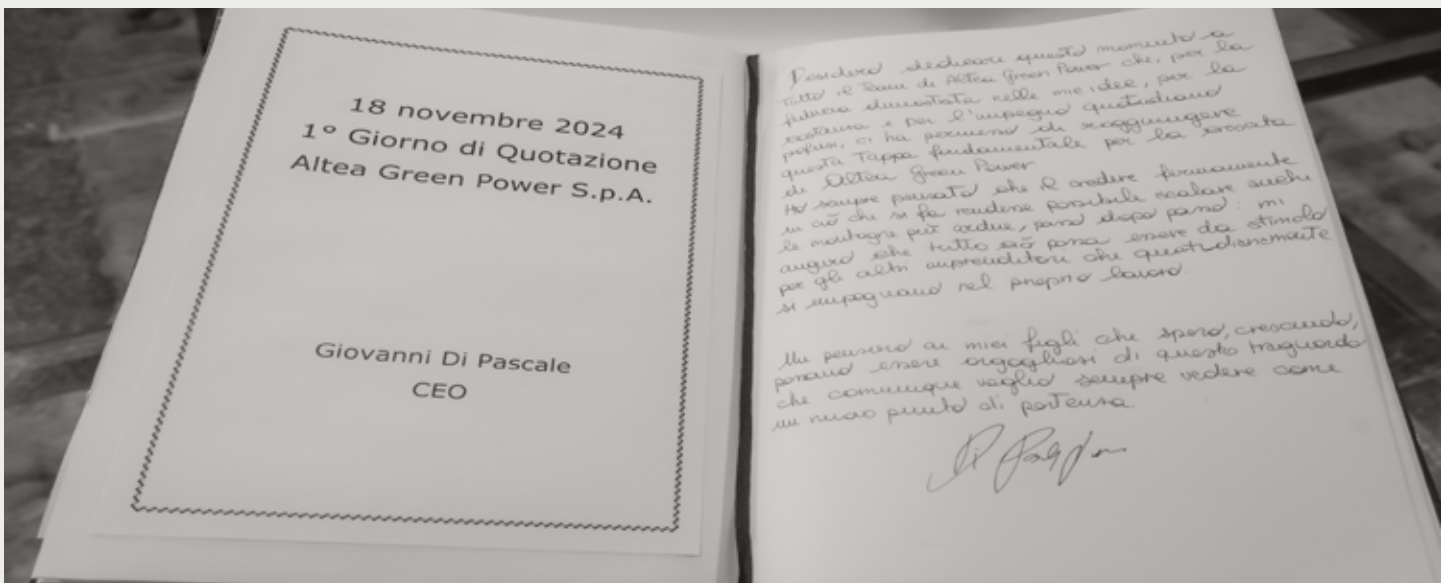 18 novembre 2024
1° Giorno di Quotazione
Altea Green Power S.p.A.
Giovanni Di Pascale
CEO
Desidero dedicare questo momento a
tutto il Team di Altea Green Power che, per la
fiducia dimostrata nelle mie idee, per la
costanza e per l'impegno quotidiano
profusi, ci ha permesso di raggiungere
questa Tappa fondamentale per la crescita
di Altea Green Power.
Ho sempre pensato che il credere fermamente
in ciò che si fa rendesse possibile scalare anche
le montagne più ardue, passo dopo passo: mi
auguro che tutto ciò possa essere da stimolo
per gli altri imprenditori che quotidianamente
si impegnano nel proprio lavoro.
Un pensiero ai miei figli che spero, crescendo,
possano essere orgogliosi di questo traguardo
che comunque voglio sempre vedere come
un nuovo punto di partenza.